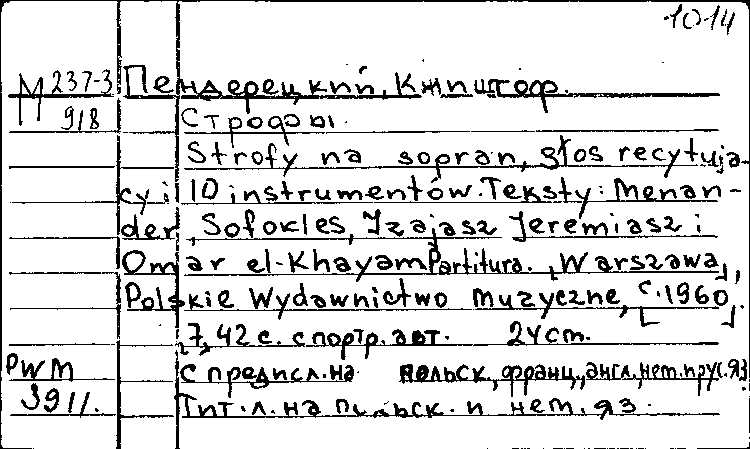 1014
М 237-3 Пендерецкий, Кжиштоф.
918 Строфы.
Strofy na sopran, głos recytują-
cy i 10 instrumentów. Teksty: Menan-
der, Sofokles, Izajasz Jeremiasz i
Omar el-Khayam Partitura. [Warszawa],
Polskie Wydawnictwo Muzyczne, [c. 1960].
[7], 42 с. с портр. авт. 24 cm.
PWM С предисл. на польск., франц., англ., нем. и рус. яз.
3911. Тит. л. на польск. и нем. яз.